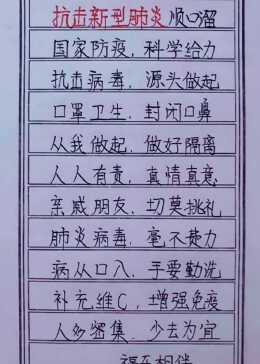 抗击新型肺炎 顺口溜
国家防疫，科学给力
抗击病毒，源头做起
口罩卫生，封闭口鼻
从我做起，做好隔离
人人有责，真情真意
亲戚朋友，切莫挑礼
肺炎病毒，毫不费力
病从口入，手要勤洗
补充维C，增强免疫
人多密集，少去为宜